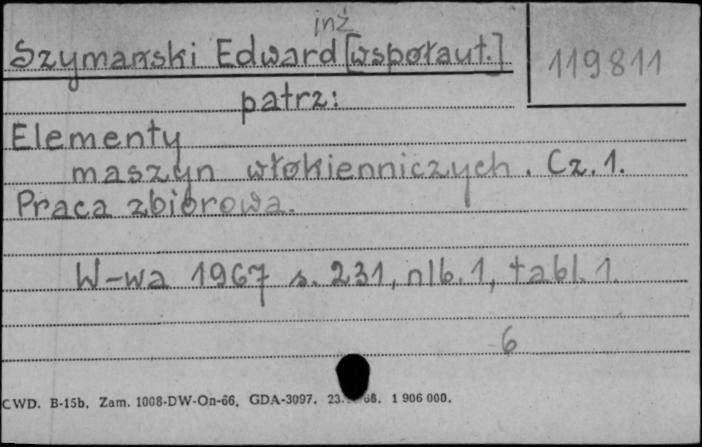 inż
Szymański Edward [współaut.]
119811
patrz:
Elementy
maszyn włókienniczych. Cz. 1.
Praca zbiorowa.
W-wa 1967 s. 231, nlb. 1, tabl. 1.
6
CWD. B-15b. Zam. 1008-DW-On-66. GDA-3097. 23. 66. 1 906 000.